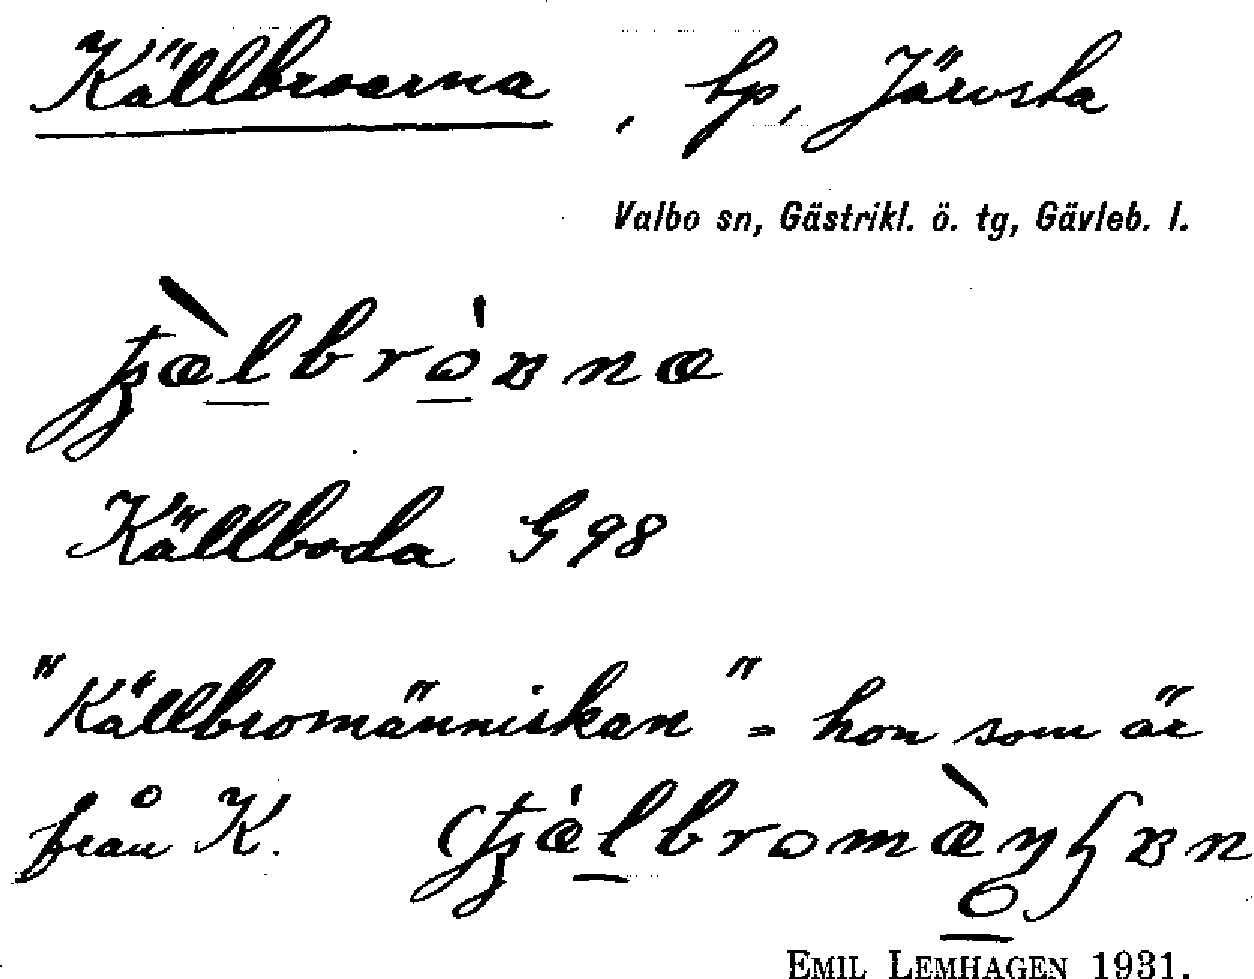 Källbroarna, tp, Järvsta
Valbo sn, Gästrikl. ö. tg, Gävleb. l.
Källboda G 98
"Källbromänniskan" = hon som är
från K.
EMIL LEMHAGEN 1931.